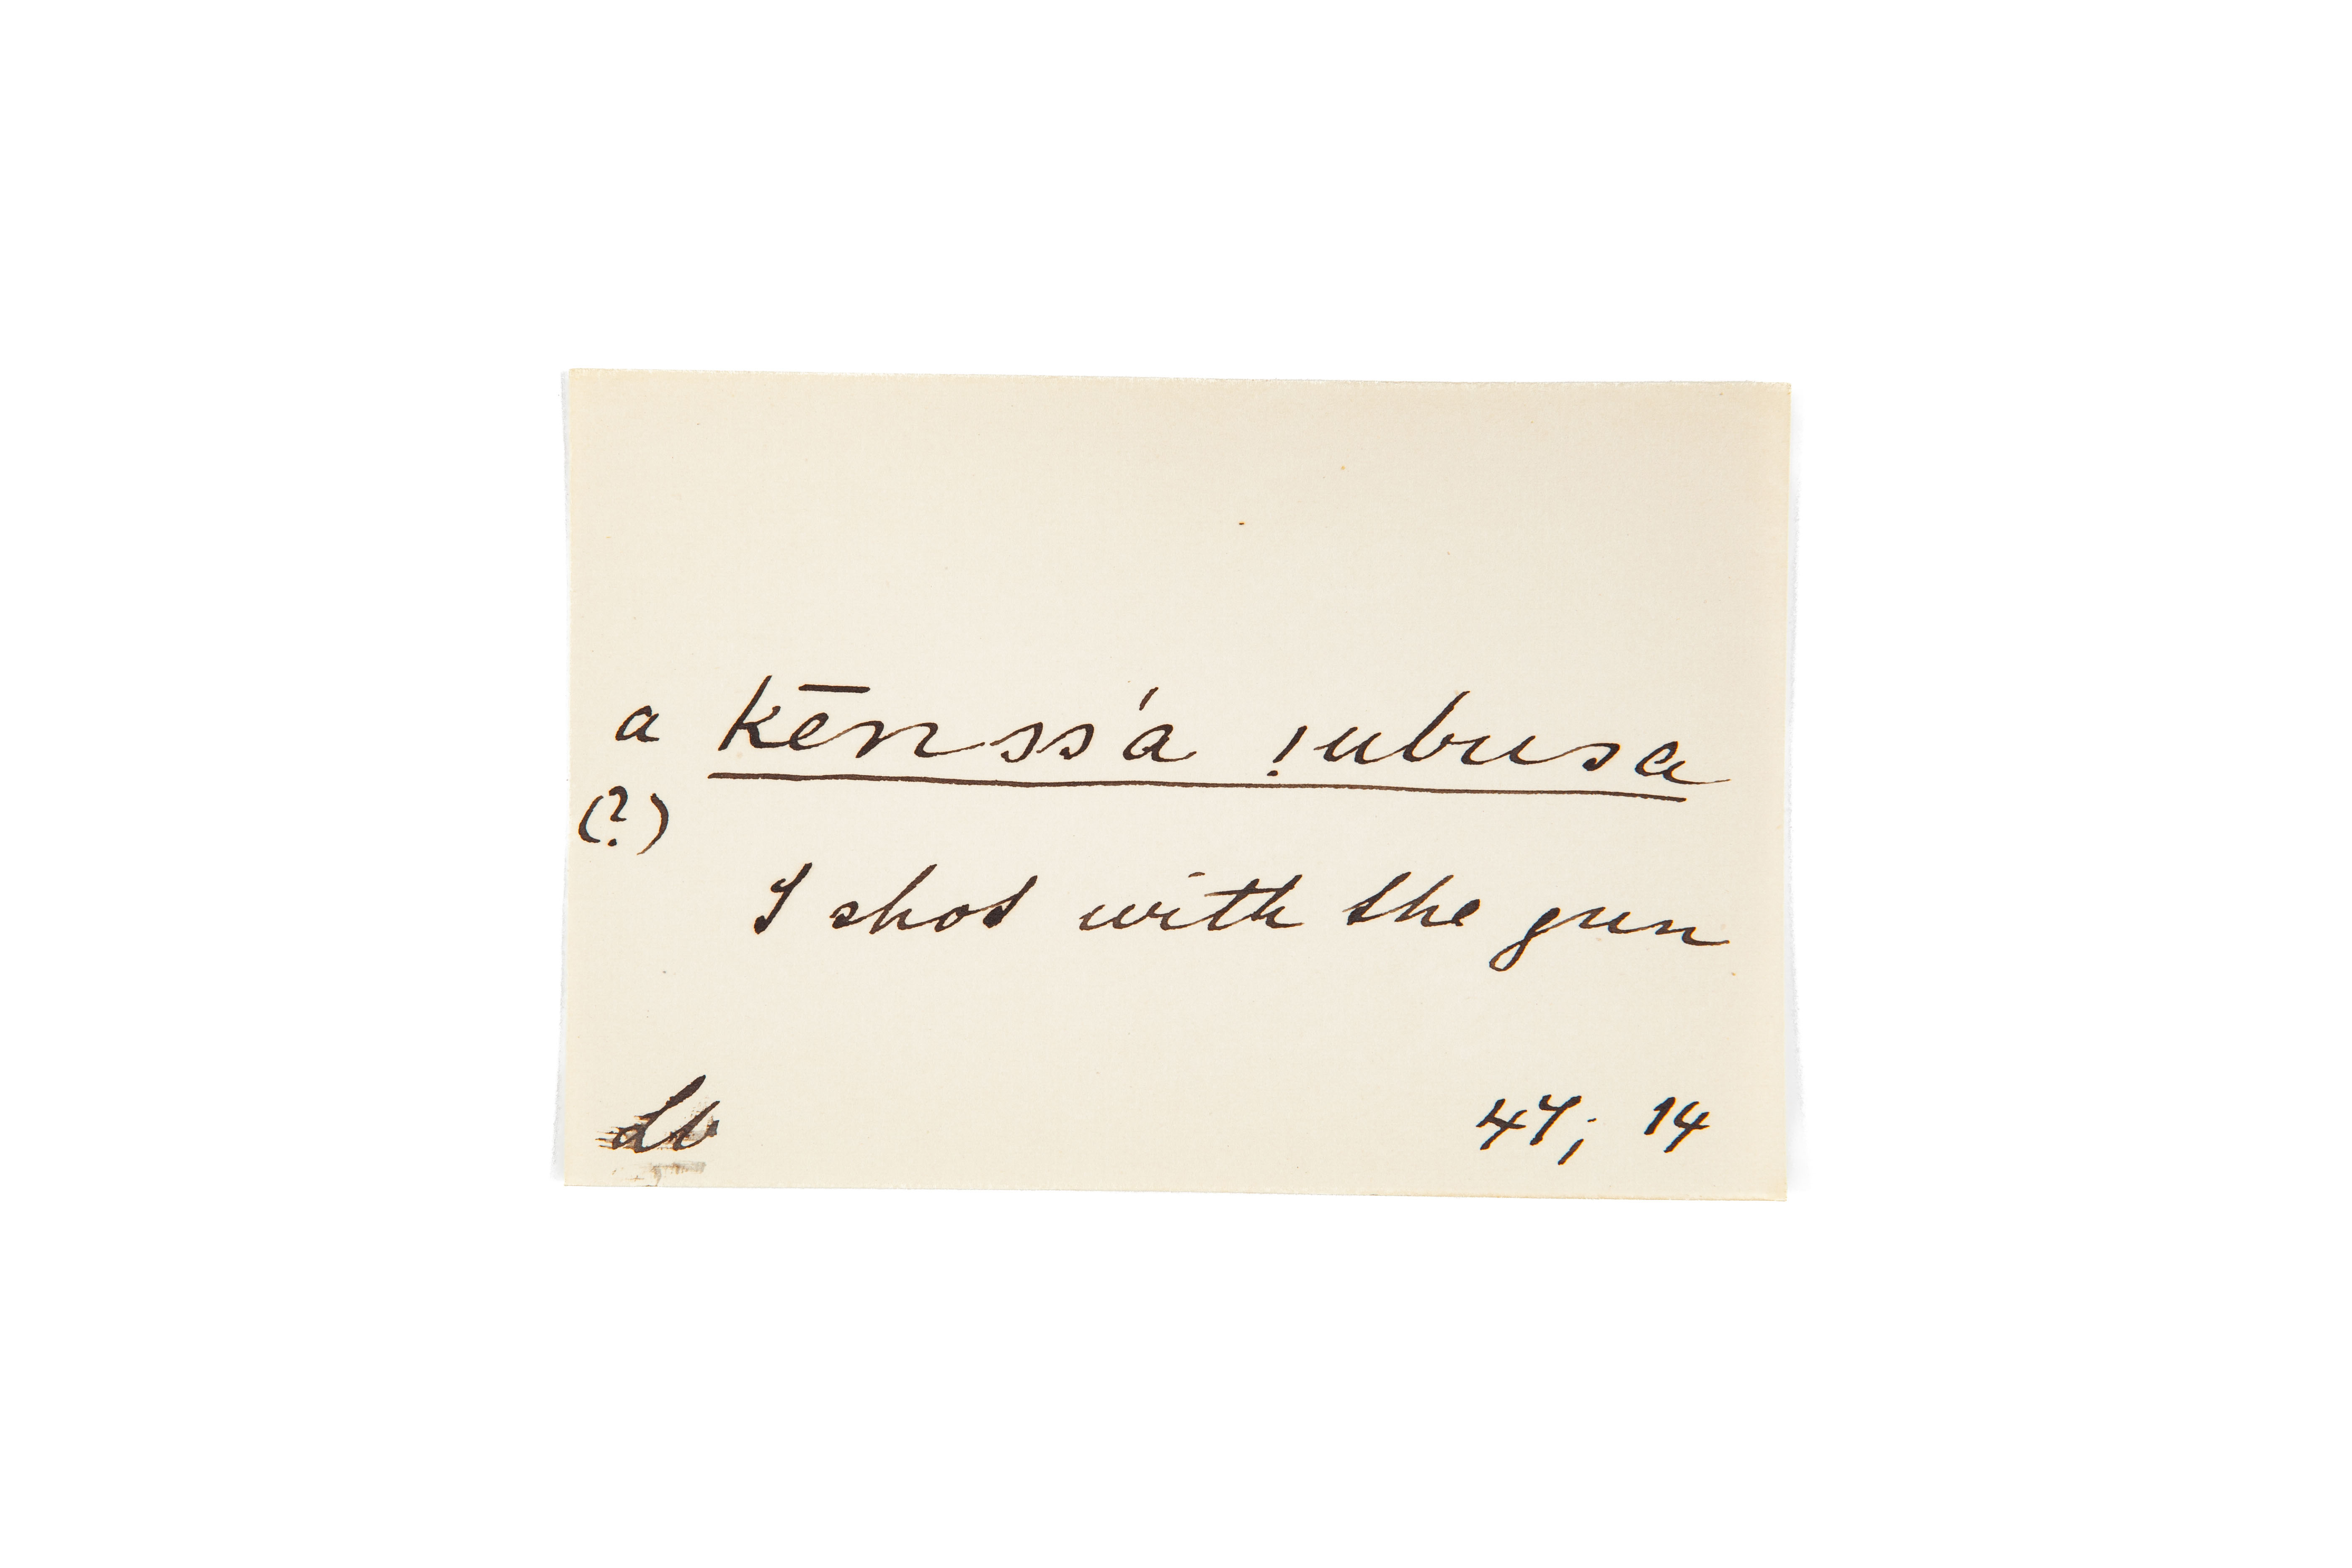 a kēnssá !ubusa
(?)
I shot with the gun
Lb 47; 14